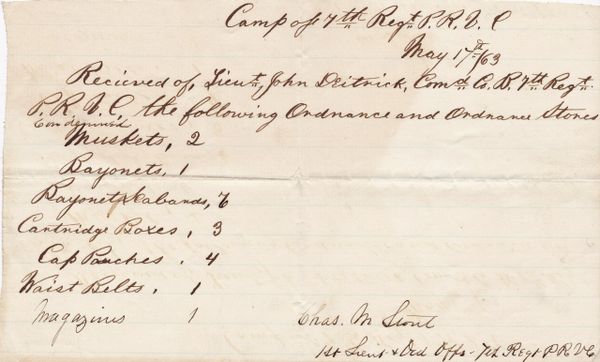 Camp of 7th Regt P. R. V. C
May 17th/63
Recieved of, Lieut, John Deitrick, Comd Co. B. 7th Regt.
P. R. V. C, the following Ordnance and Ordnance Stores
Condemned
Muskets, 2
Bayonets, 1
Bayonet Scabards, 6
Cartridge Boxes, 3
Cap Pouches . 4
Waist Belts, 1
Magazines 1
Chas. M Stout
1st Lieut & Ord Offr - 7th Regt P R V C